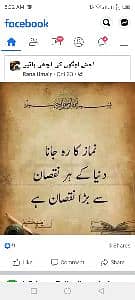 facebook
اچھی لوگوں کی اچھی باتیں
Rana Umair
نماز کا رہ جانا
دنیا کے ہر نقصان
سے بڑا نقصان ہے
Like
Comment
Share